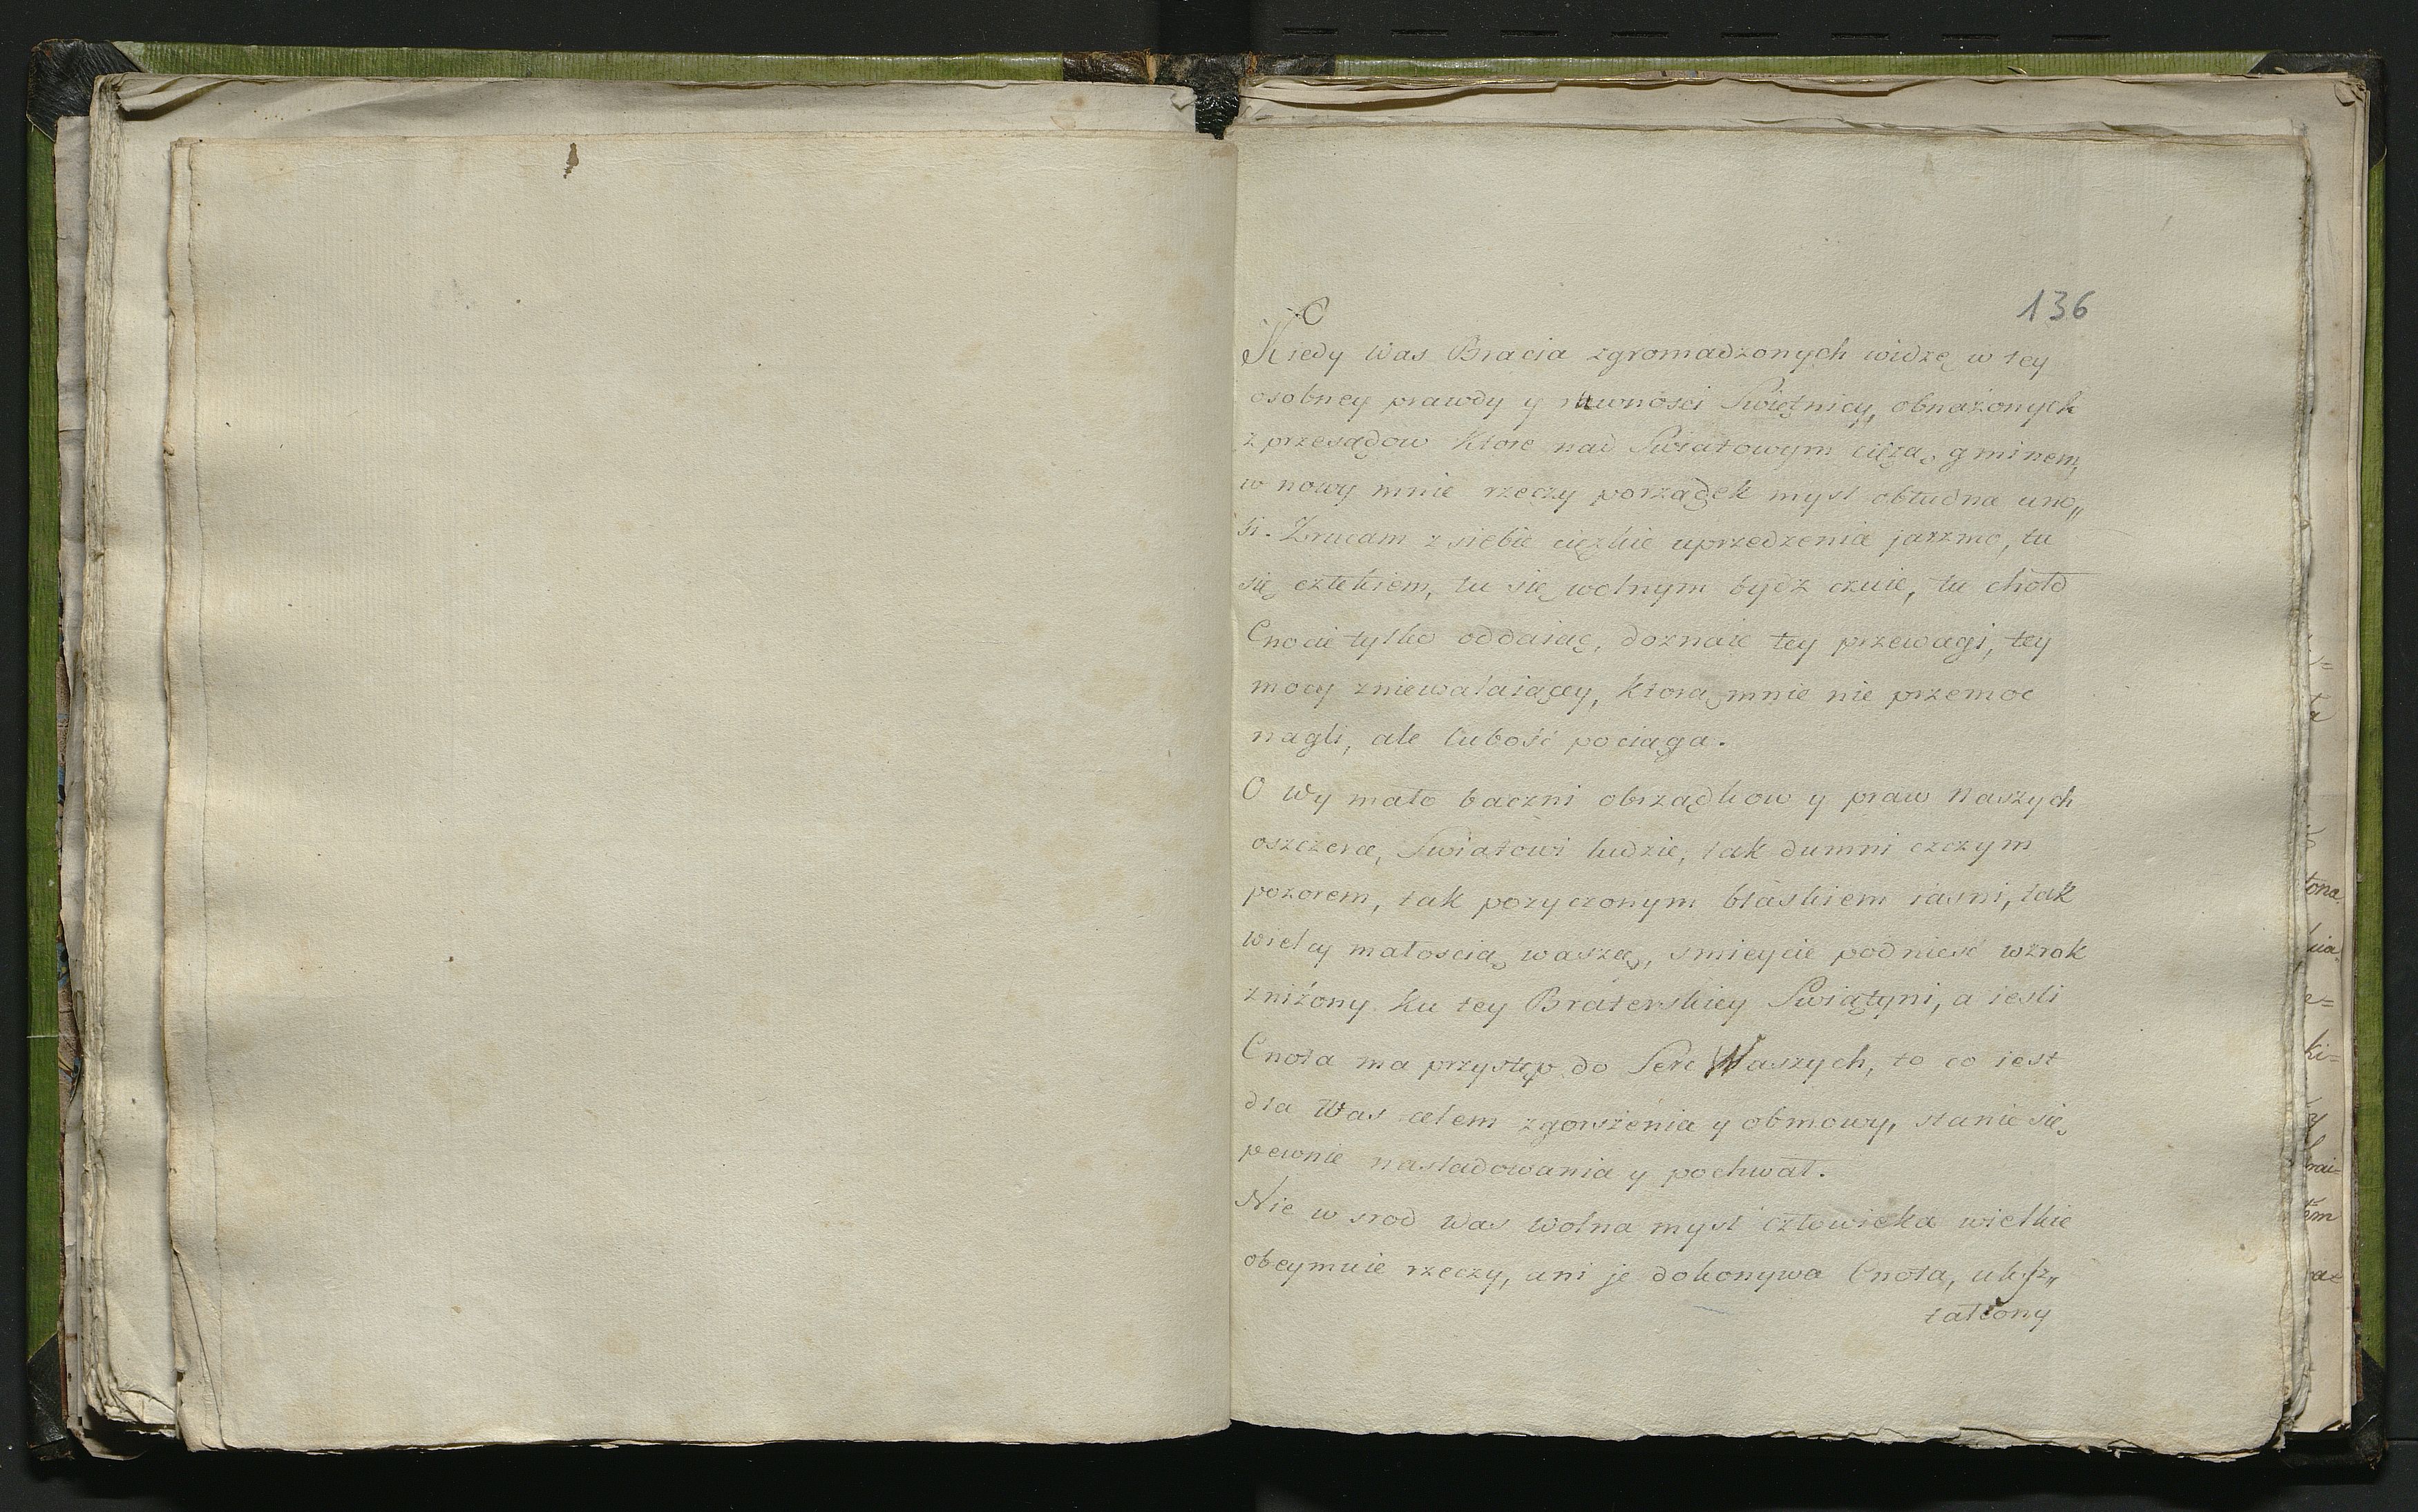 136
Kiedy Was Bracia zgromadzonych widzę w tey
osobney prawdy y rownosci Swiętnicy, obnażonych
z przesądow ktore nad Swiatowym ciężą gminem,
w nowy mnie rzeczy porządek mysl obłudna uno„
si. Zrucam z siebie ciężkie uprzedzenia jarzmo, tu
się człekiem, tu się wolnym bydz czuie, tu chołd
Cnocie tylko oddaiąc, doznaie tey przewagi, tey
mocy zniewalaiącey, ktorą mnie nie przemoc
nagli, ale lubość pociąga.
O Wy mało baczni obrządkow y praw Naszych
oszczerce, Swiatowi ludzie, tak dumni czczym
pozorem, tak pozyczonym błaskiem iasni, tak
wielcy małoscią waszą, smieycie podnieść wzrok
zniżony ku tey Braterskiey Swiątyni, a iesli
Cnota ma przystęp do Serc Waszych, to co iest
dla Was celem zgorszenia y obmowy, stanie się
pewnie nasladowania y pochwał.
Nie w srod Was Wolna mysl człowieka wielkie
obeymuie rzeczy, ani je dokonywa Cnota, uksz„
tałcony